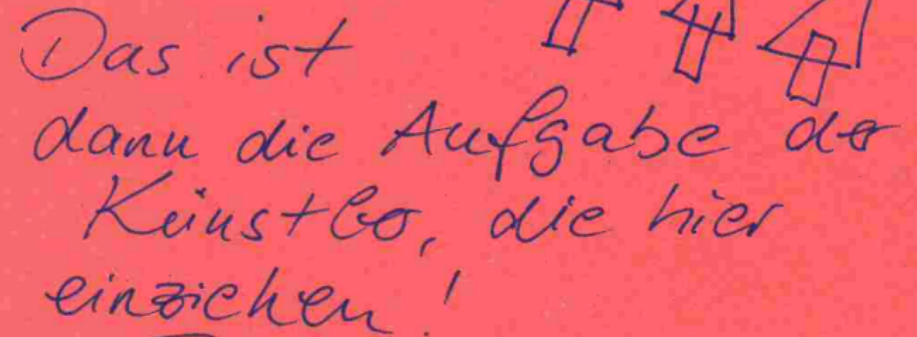 Das ist
dann die Aufgabe der
Künstler, die hier
einziehen!